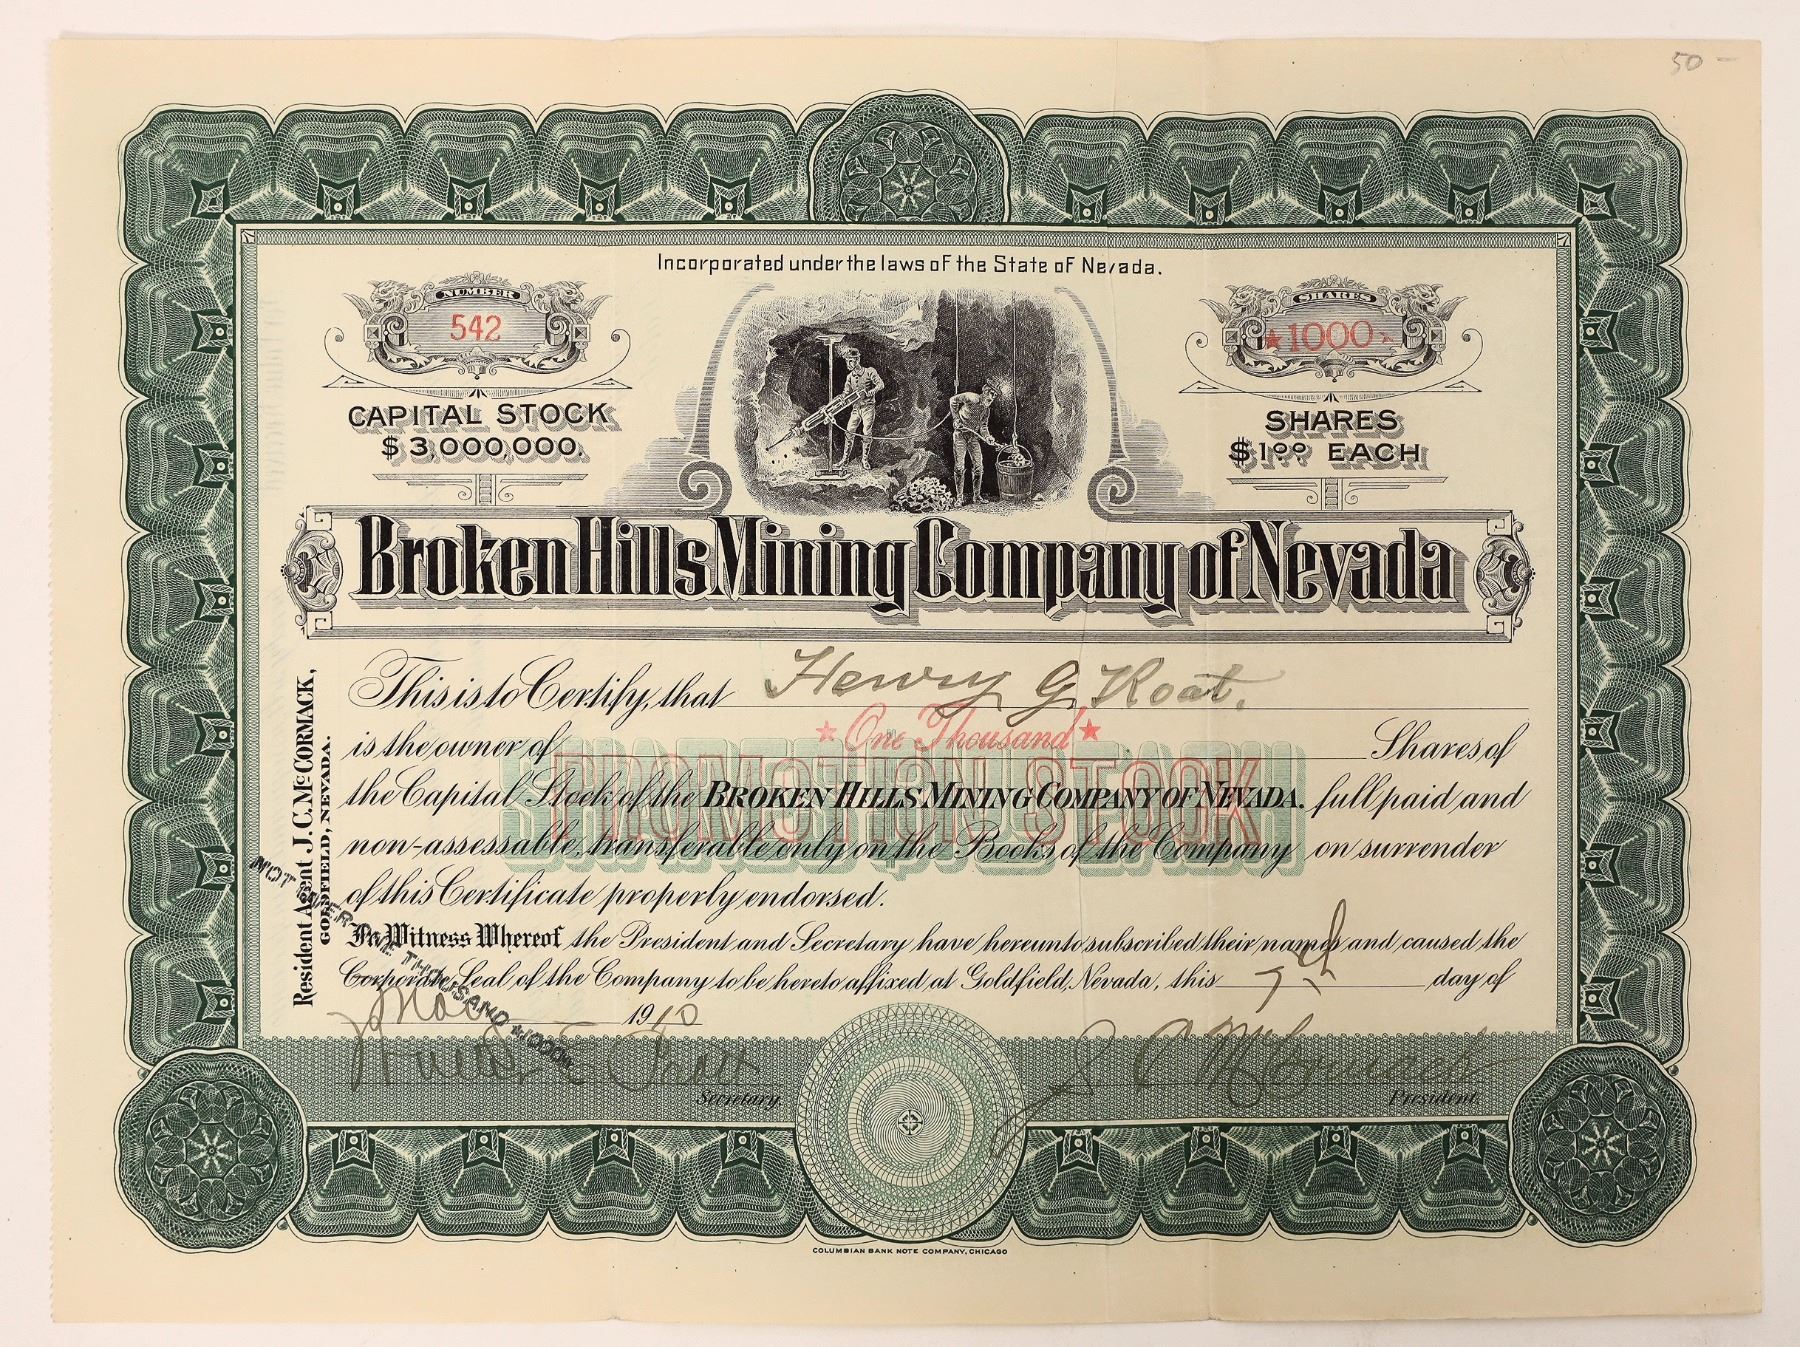 50 -
Incorporated under the laws of the State of Nevada.
NUMBER
542
CAPITAL STOCK
$3,000,000.
SHARES
★1000★
SHARES
$1.00 EACH
Broken Hills Mining Company of Nevada
This is to Certify, that Henry G. Koat.
is the owner of ★One Thousand★ Shares of
PROMOTION STOCK
the Capital Stock of the BROKEN HILLS MINING COMPANY OF NEVADA. full paid and
non-assessable, transferable only on the Books of the Company on surrender
of this Certificate properly endorsed.
In Witness Whereof the President and Secretary have hereunto subscribed their names and caused the
Corporate Seal of the Company to be hereto affixed at Goldfield, Nevada, this 7th day of
May 1910
Secretary.
J. C. McCormack
President.
Resident Agent J. C. McCORMACK,
GOLDFIELD, NEVADA.
NOT OVER ONE THOUSAND $1000$
COLUMBIAN BANK NOTE COMPANY, CHICAGO